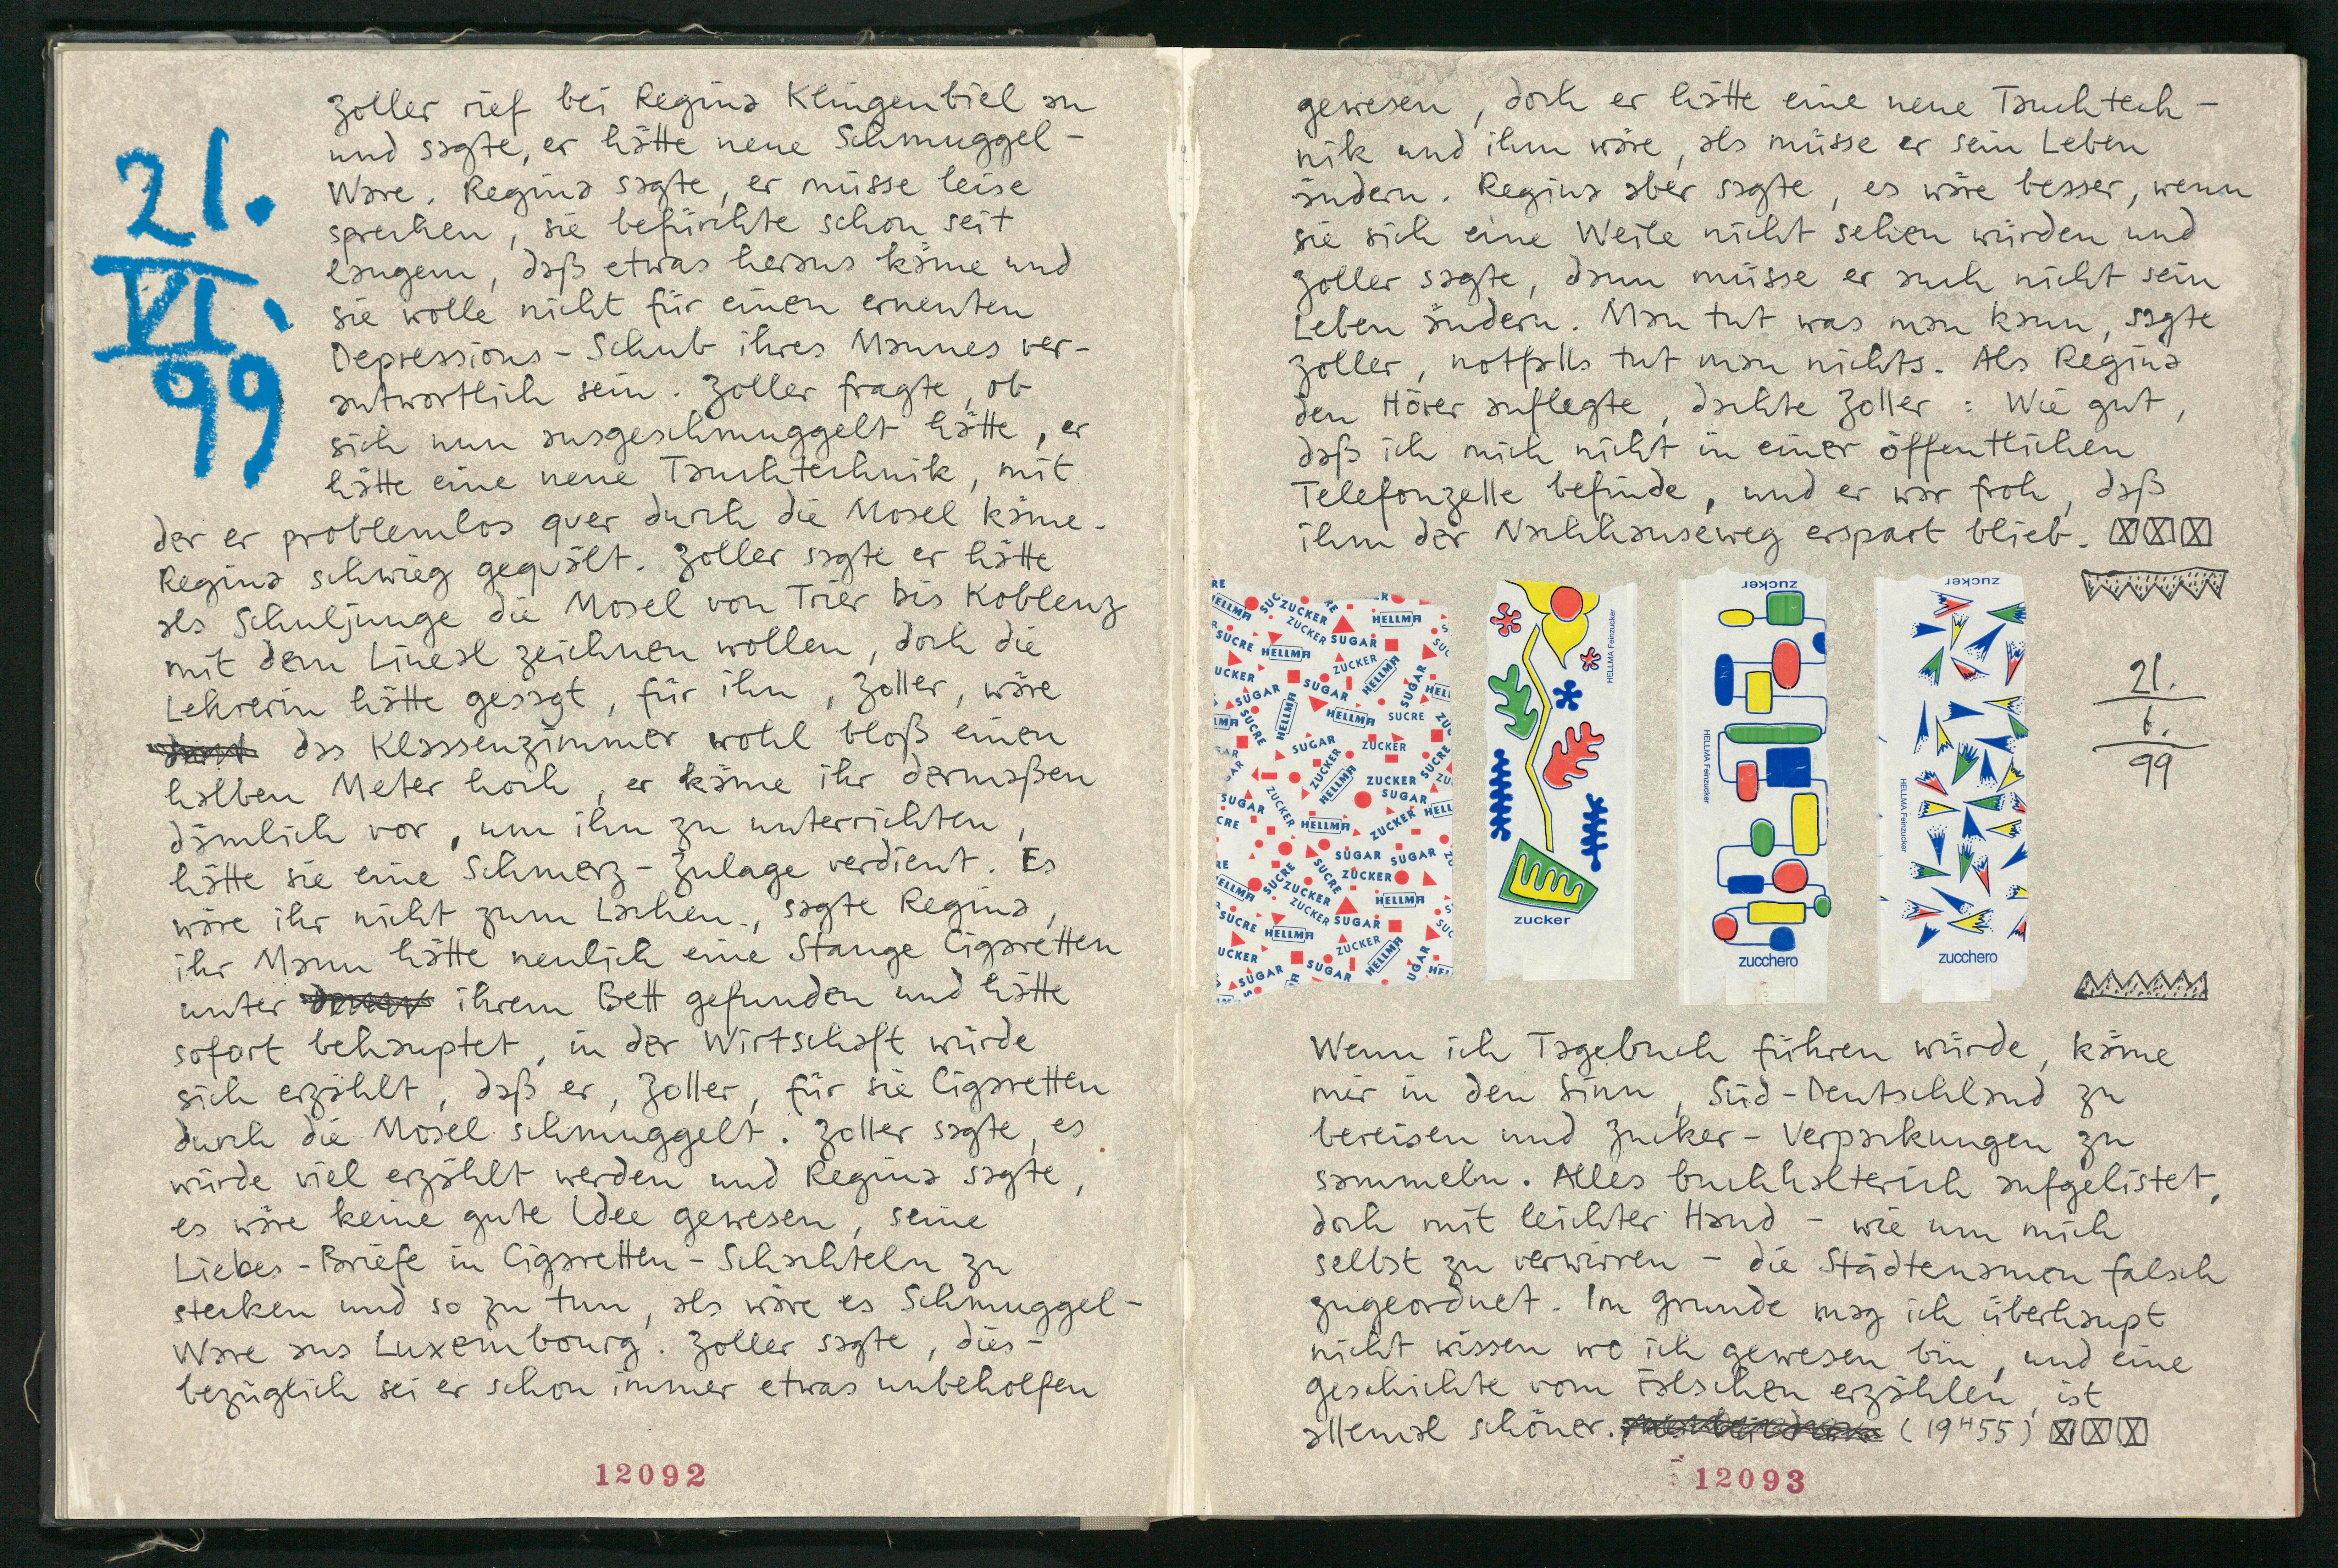 21.
VI.
99
Zoller rief bei Regina Klingenbiel an
und sagte, er hätte neue Schmuggel-
Ware. Regina sagte, er müsse leise
sprechen, sie befürchte schon seit
langem, daß etwas heraus käme und
sie wolle nicht für einen erneuten
Depressions-Schub ihres Mannes ver-
antwortlich sein. Zoller fragte, ob
sich nun ausgeschmuggelt hätte, er
hätte eine neue Tauchtechnik, mit
der er problemlos quer durch die Mosel käme.
Regina schwieg gequält. Zoller sagte er hätte
als Schuljunge die Mosel von Trier bis Koblenz
mit dem Lineal zeichnen wollen, doch die
Lehrerin hätte gesagt, für ihn, Zoller, wäre
das Klassenzimmer wohl bloß einen
halben Meter hoch, er käme ihr dermaßen
dämlich vor, um ihn zu unterrichten,
hätte sie eine Schmerz-Zulage verdient. Es
wäre ihr nicht zum Lachen, sagte Regina,
ihr Mann hätte neulich eine Stange Cigaretten
unter ihrem Bett gefunden und hätte
sofort behauptet, in der Wirtschaft würde
sich erzählt, daß er, Zoller, für sie Cigaretten
durch die Mosel schmuggelt. Zoller sagte, es
würde viel erzählt werden und Regina sagte,
es wäre keine gute Idee gewesen, seine
Liebes-Briefe in Cigaretten-Schachteln zu
stecken und so zu tun, als wäre es Schmuggel-
Ware aus Luxembourg. Zoller sagte, dies-
bezüglich sei er schon immer etwas unbeholfen
12092
gewesen, doch er hätte eine neue Tauchtech-
nik und ihm wäre, als müsse er sein Leben
ändern. Regina aber sagte, es wäre besser, wenn
sie sich eine Weile nicht sehen würden und
Zoller sagte, dann müsse er auch nicht sein
Leben ändern. Man tut was man kann, sagte
Zoller, notfalls tut man nichts. Als Regina
den Hörer auflegte, dachte Zoller: Wie gut,
daß ich mich nicht in einer öffentlichen
Telefonzelle befinde, und er war froh, daß
ihm der Nachhauseweg erspart blieb.
HELLMA ZUCKER SUGAR SUCRE
HELLMA Feinzucker
zucker
zucker
HELLMA Feinzucker
zucchero
zucker
HELLMA Feinzucker
zucchero
21.
6.
99
Wenn ich Tagebuch führen würde, käme
mir in den Sinn, Süd-Deutschland zu
bereisen und Zucker-Verpackungen zu
sammeln. Alles buchhalterich aufgelistet,
doch mit leichter Hand - wie um mich
selbst zu verwirren - die Städtenamen falsch
zugeordnet. Im Grunde mag ich überhaupt
nicht wissen wo ich gewesen bin, und eine
Geschichte vom Falschen erzählen, ist
allemal schöner. (19H55)
12093